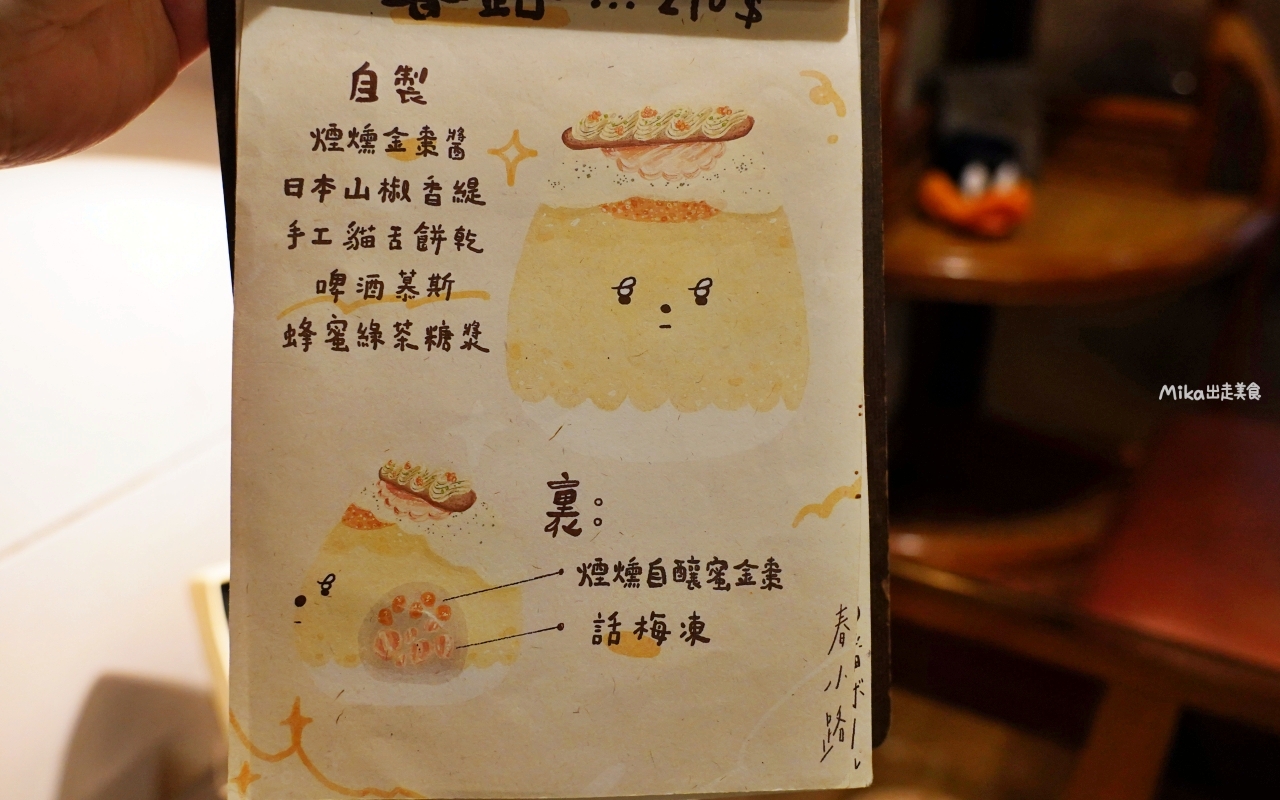 210$
自製
煙燻金棗醬
日本山椒香緹
手工貓舌餅乾
啤酒慕斯
蜂蜜綠茶糖漿
裏：
煙燻自釀蜜金棗
話梅凍
春小路
Mika出走美食